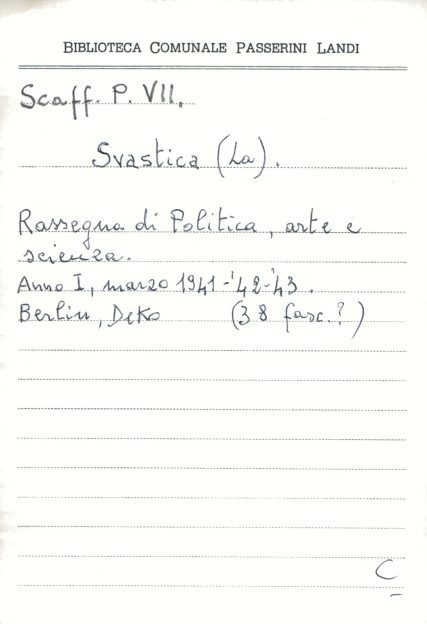 BIBLIOTECA COMUNALE PASSERINI LANDI
Scaff. P. VII.
Svastica (La).
Rassegna di Politica, arte e
scienza.
Anno I, marzo 1941-'42-'43.
Berlin, Deko (38 fasc.?)
C